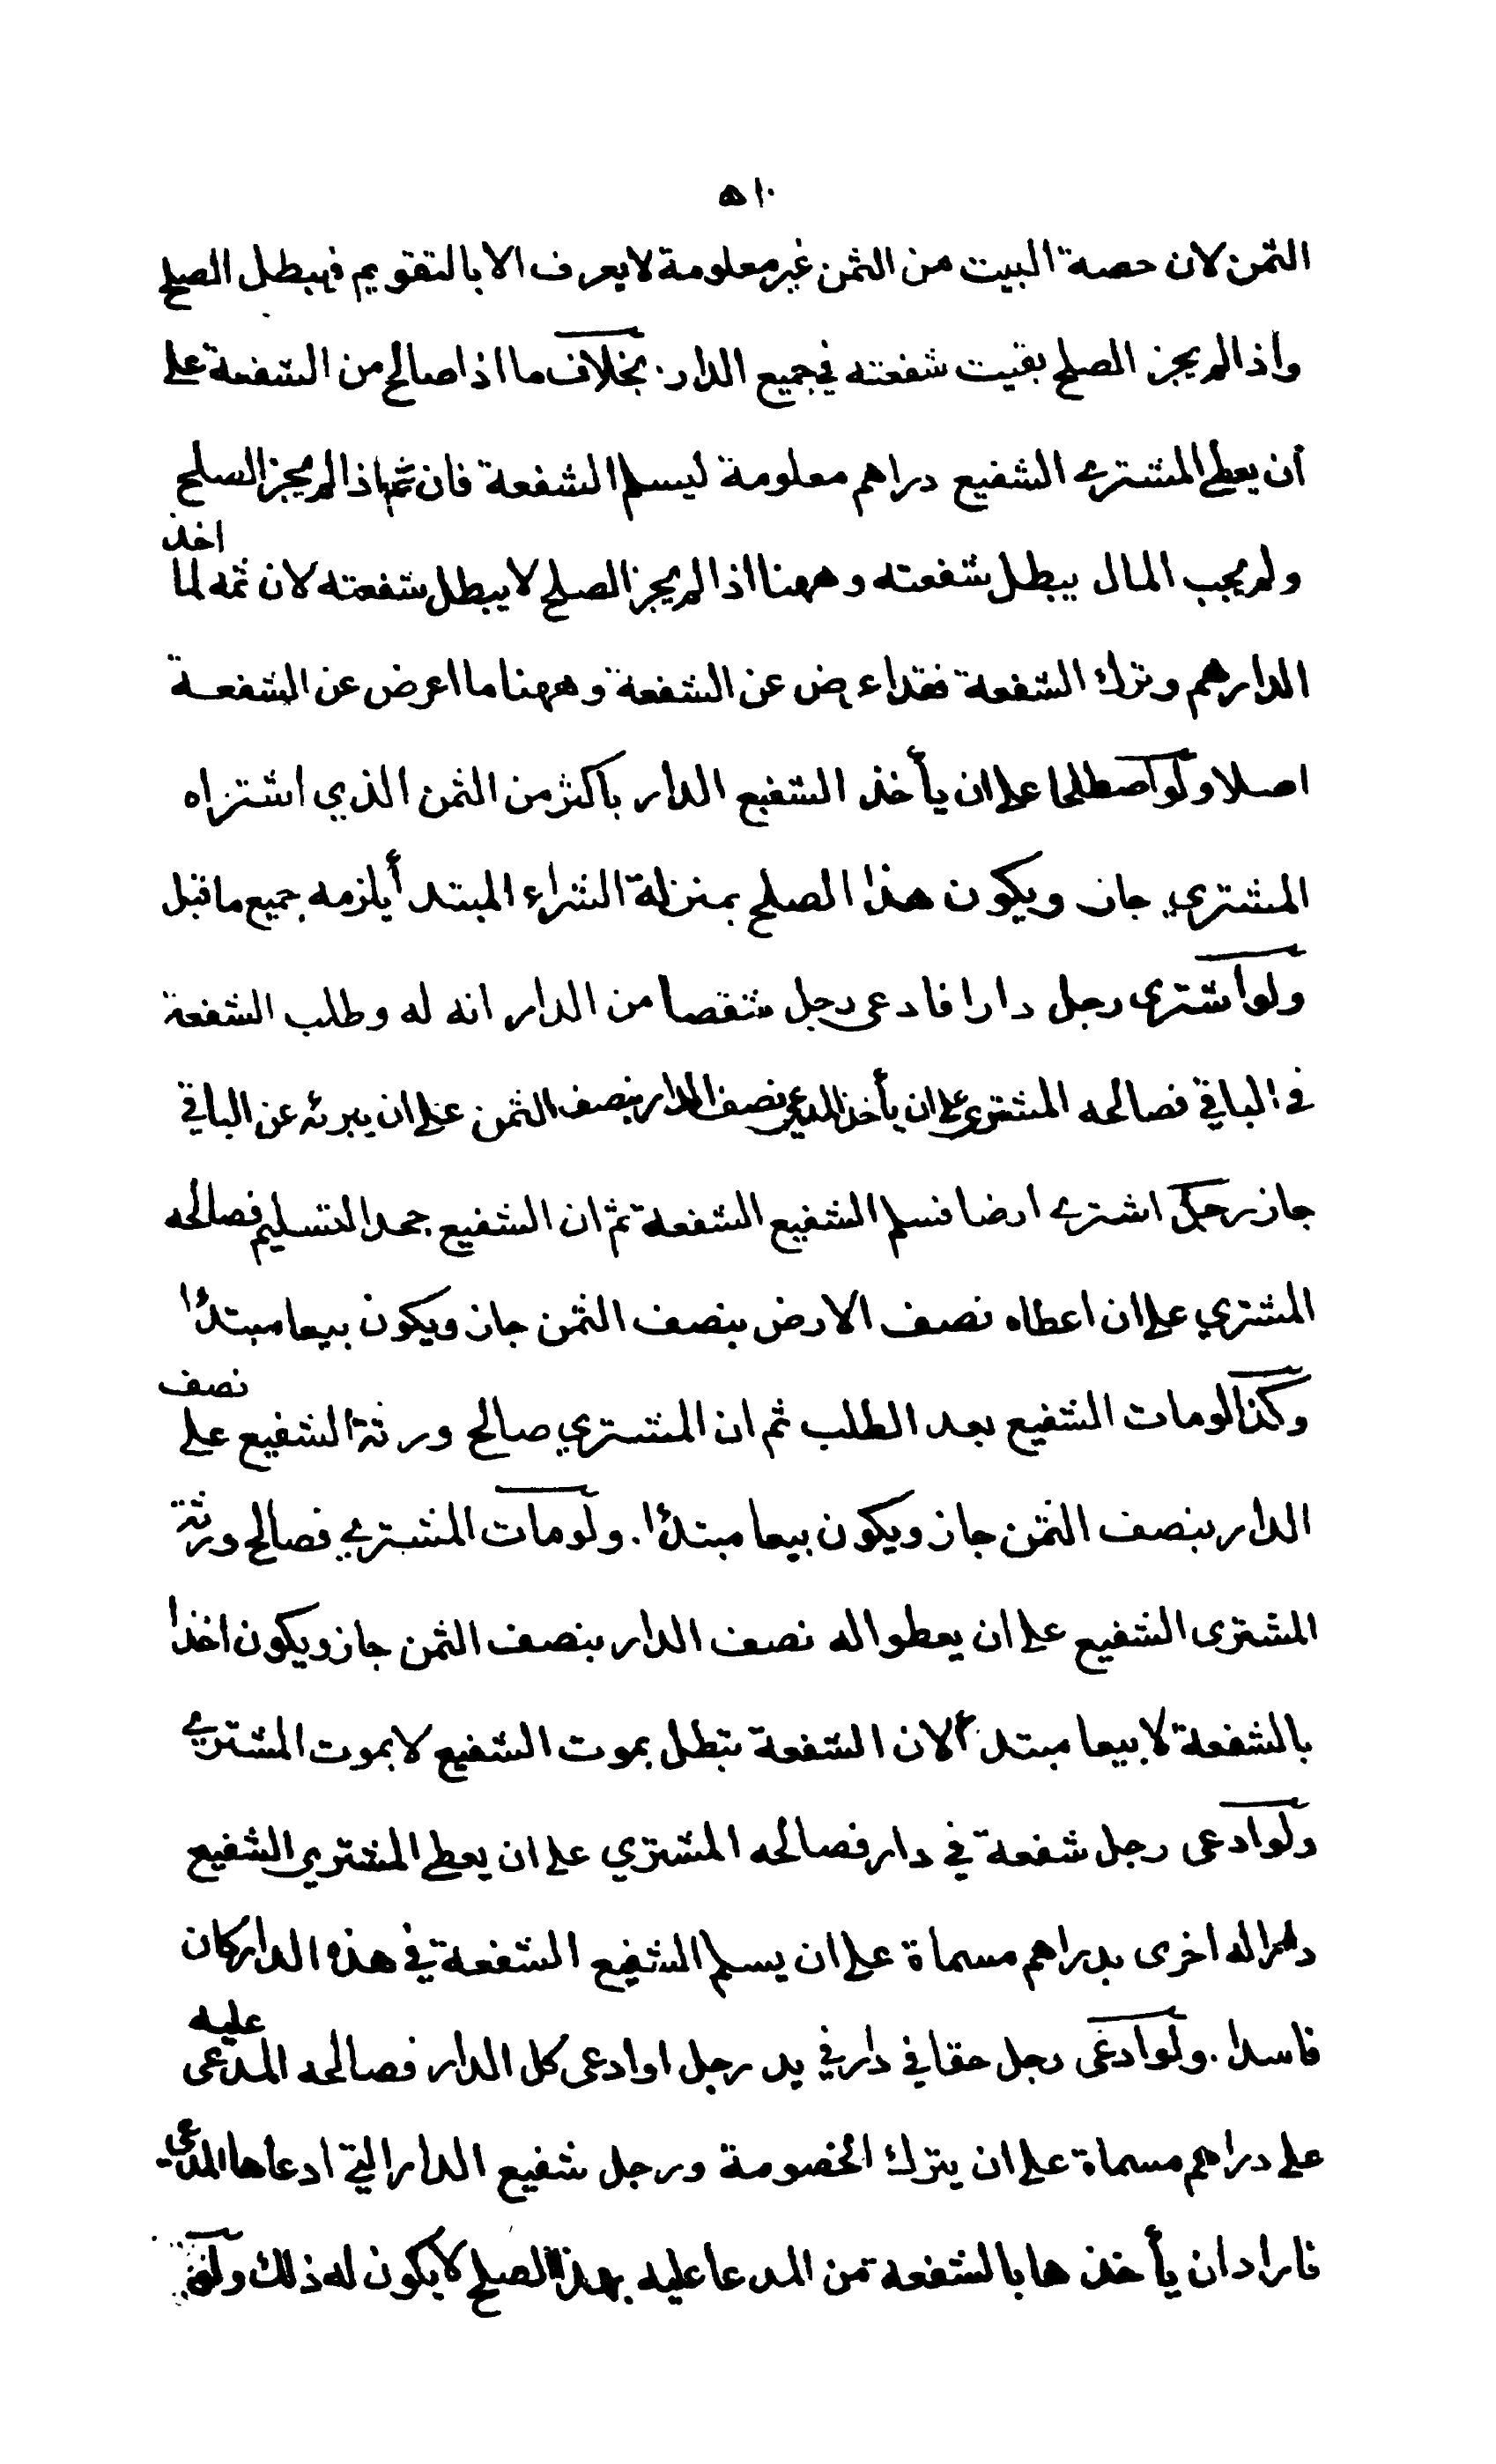 ٥١٠
الثمن لان حصة البيت من الثمن غير معلومة لا يعرف الا بالتقويم فيبطل الصلح
واذا لم يجز الصلح بقيت شفعته في جميع الدار. بخلاف ما اذا صالح من الشفعة على
أن يعطي المشتري الشفيع دراهم معلومة ليسلم الشفعة فان ثم اذا لم يجز السلح
ولم يجب المال يبطل شفعته وههنا اذا لم يجز الصلح لا يبطل شفعته لان ثمه لما اخذ
الدارهم وترك الشفعة فقد اعرض عن الشفعة وههنا ما اعرض عن الشفعة
اصلا ولو اصطلحا على ان يأخذ الشفيع الدار باكثر من الثمن الذي اشتراه
المشتري جاز ويكون هذا الصلح بمنزلة الشراء المبتدأ يلزمه جميع ما قبل
ولو اشترى رجل دارا فادعى رجل شقصا من الدار انه له وطلب الشفعة
في الباقي فصالحه المشترى على ان يأخذ المدعى نصف الدار بنصف الثمن على ان يبرئه عن الباقي
جاز رجل اشترى ارضا فسلم الشفيع الشفعة ثم ان الشفيع جحد التسليم فصالحه
المشتري على ان اعطاه نصف الارض بنصف الثمن جاز ويكون بيعا مبتدئا
وكذا لو مات الشفيع بعد الطلب ثم ان المشتري صالح ورثة الشفيع على نصف
الدار بنصف الثمن جاز ويكون بيعا مبتدئا. ولو مات المشتري فصالح ورثة
المشترى الشفيع على ان يعطوا له نصف الدار بنصف الثمن جاز ويكون اخذا
بالشفعة لا بيعا مبتدءا لان الشفعة تبطل بموت الشفيع لا بموت المشتري
ولو ادعى رجل شفعة في دار فصالحه المشتري على ان يعطي المشتري الشفيع
دارا له اخرى بدراهم مسماة على ان يسلم الشفيع الشفعة في هذه الدار كان
فاسدا. ولو ادعى رجل حقا في دار في يد رجل او ادعى كل الدار فصالحه المدعى عليه
على دراهم مسماة على ان يترك الخصومة ورجل شفيع الدار التي ادعاها المدعي
فاراد ان يأخذها بالشفعة من المدعا عليه بهذا الصلح لا يكون له ذلك